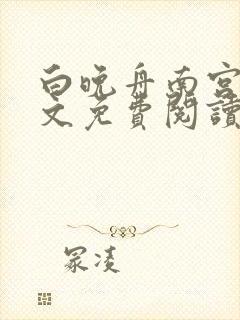 白晚舟南宫
文免费閱讀
冢凌